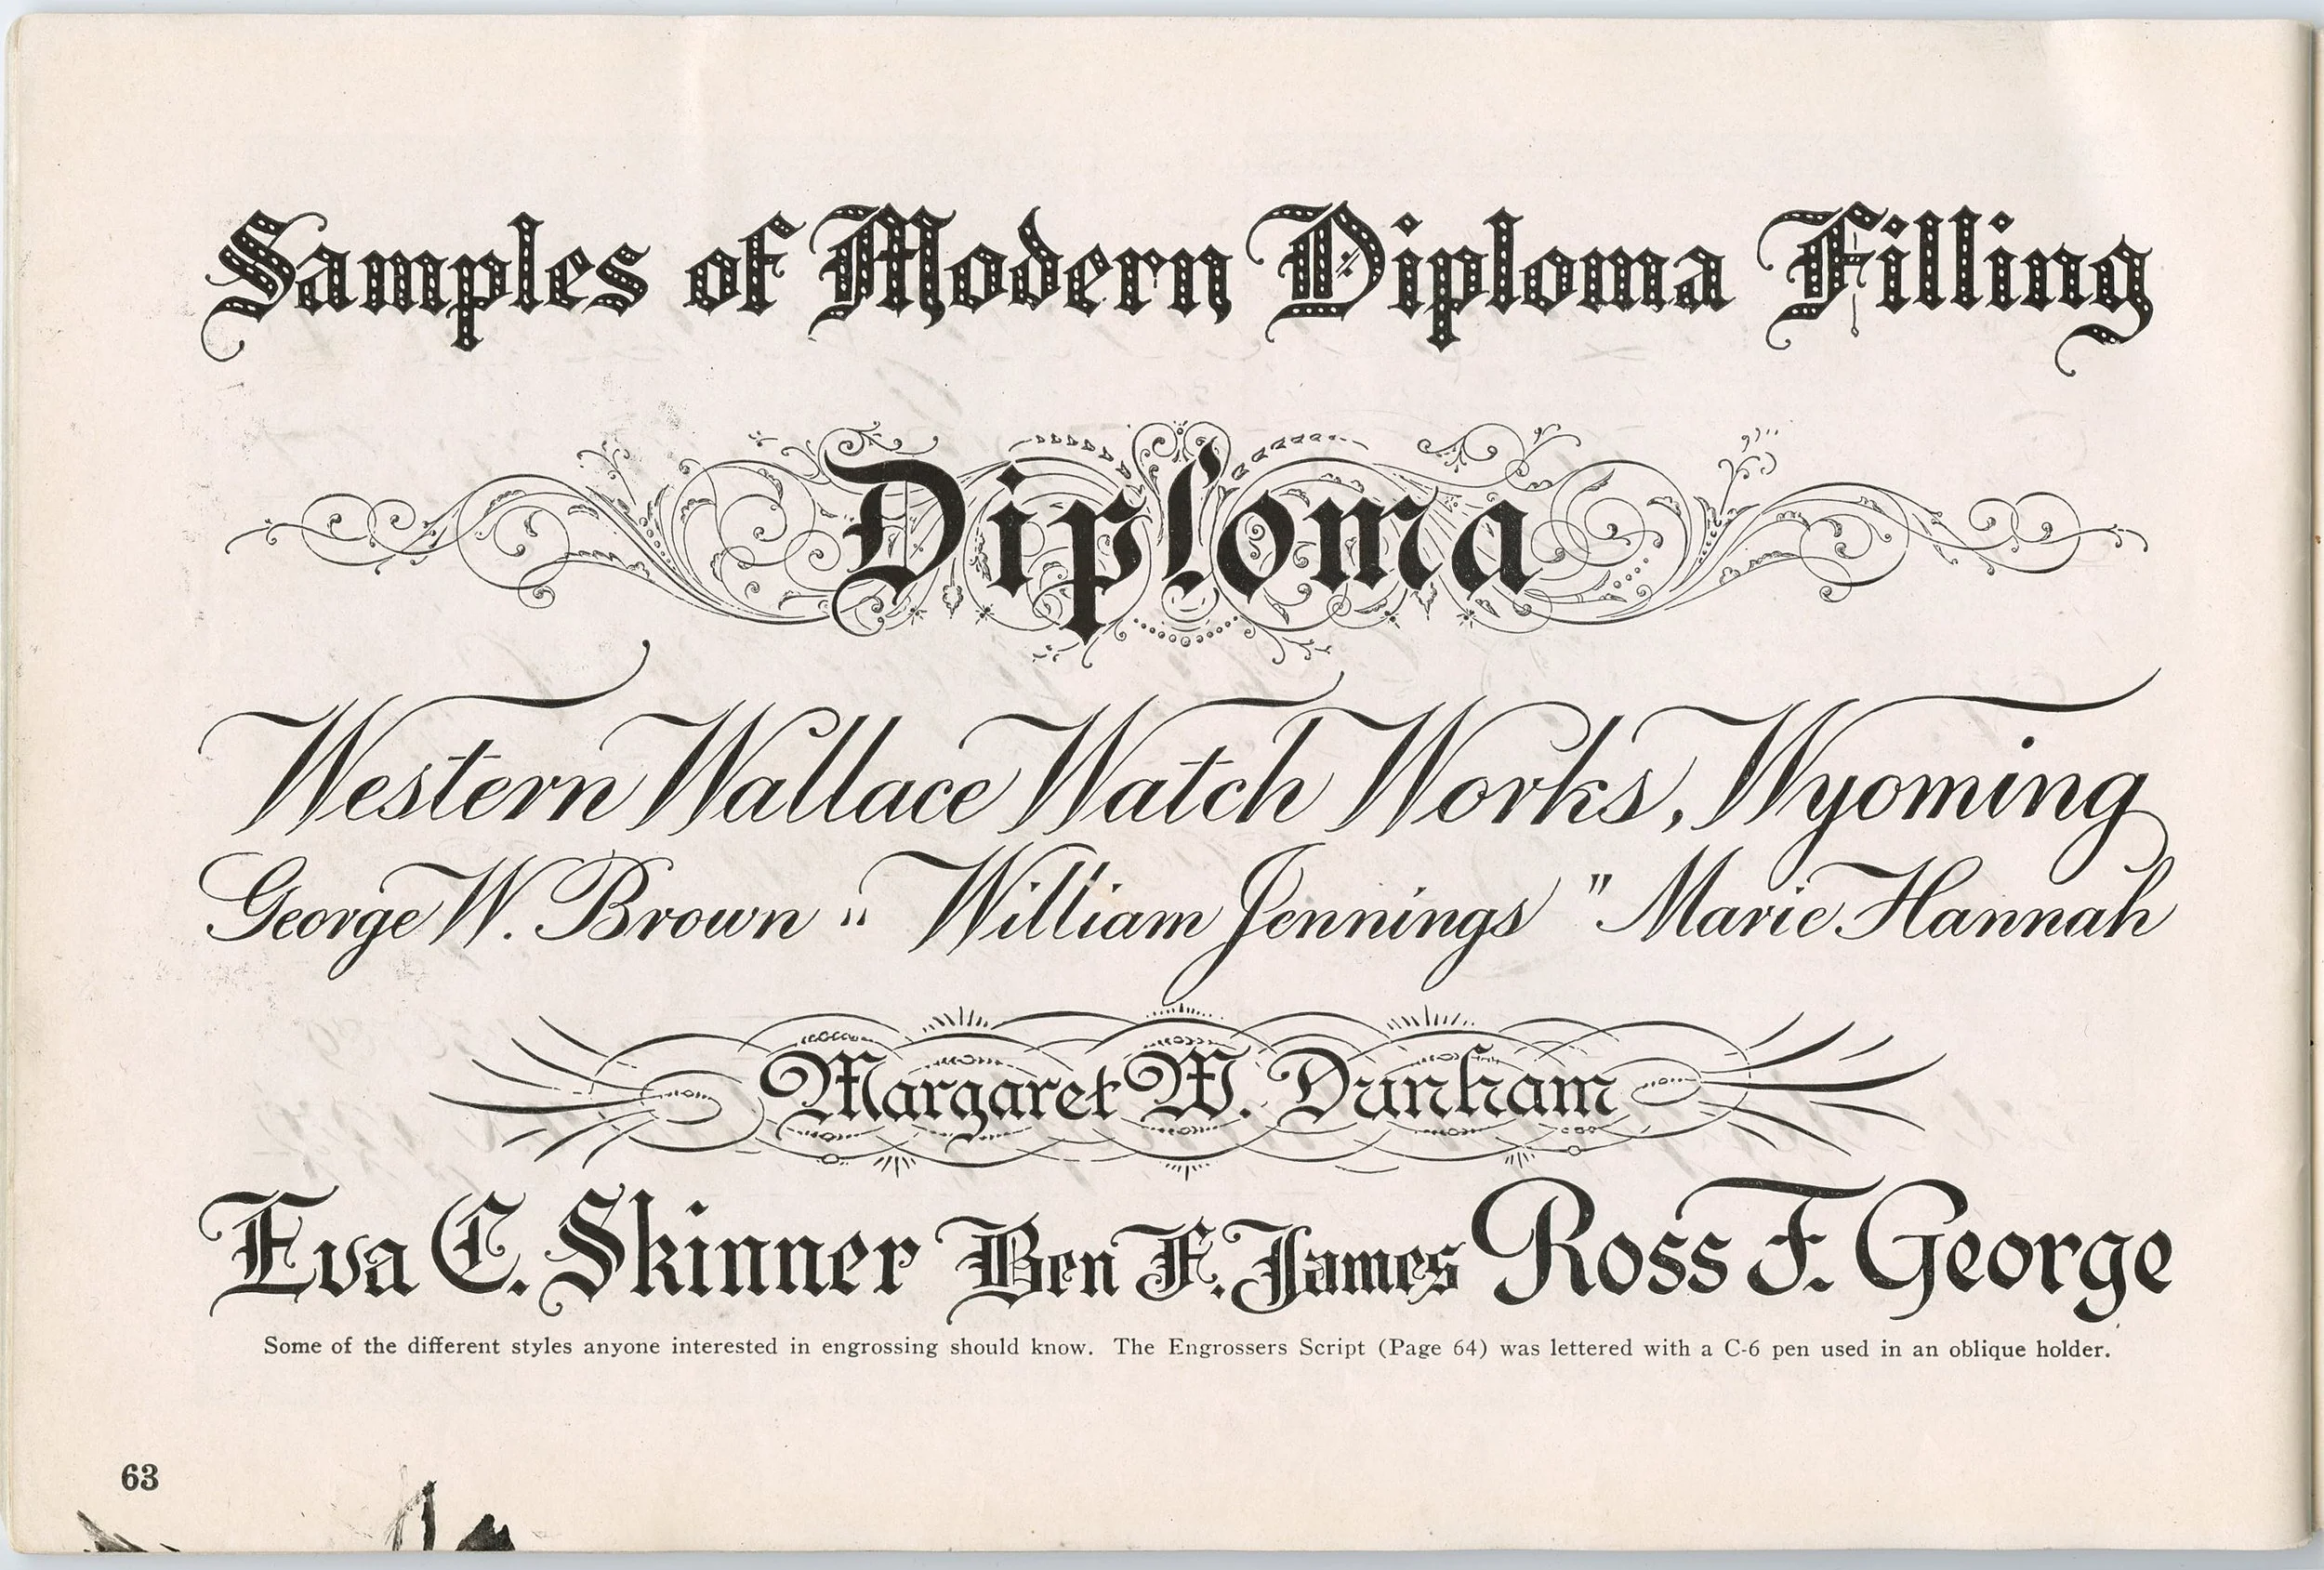 Samples of Modern Diploma Filling
Diploma
Western Wallace Watch Works, Wyoming
George W. Brown " William Jennings " Marie Hannah
Margaret W. Dunham
Eva C. Skinner Ben F. James Ross F. George
Some of the different styles anyone interested in engrossing should know. The Engrossers Script (Page 64) was lettered with a C-6 pen used in an oblique holder.
63